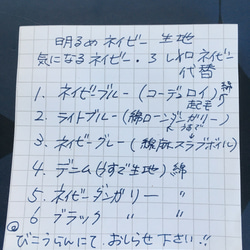 明るめネイビー 生地
気になるネイビー・3 しわネイビー
代替
1. ネイビーブルー (コーデュロイ) 綿
起毛
2. ライトブルー (綿ローンジーガリー)
3. ネイビーグレー (綿麻スラブボイル)
4. デニム (うすで生地) 綿
5. ネイビーダンガリー 〃
6 ブラック 〃 〃
びこうらんにて、おしらせ下さい